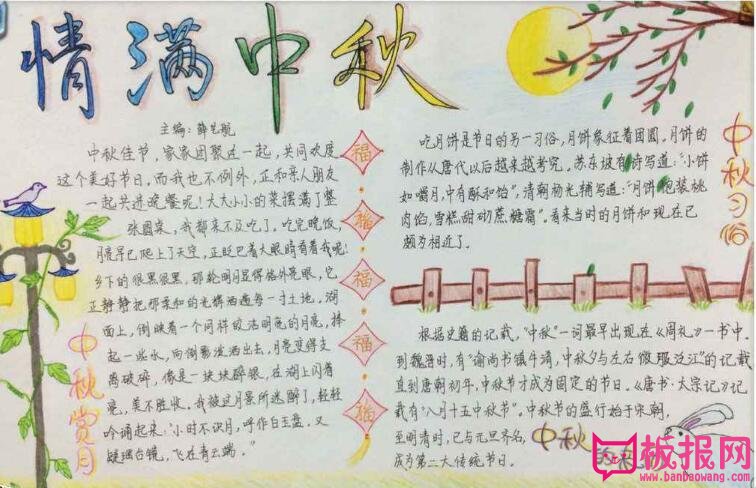 情满中秋
主编:薛艺
中秋佳节,家家团聚在一起,共同欢度
这个美好节日。而我也不例外,正和哥人朋友
一起共进晚餐呢!大大小小的菜摆满了整
张圆桌,我都来不及吃了。吃完晚饭,
月亮早已爬上了天空,正眨巴着大眼睛看着我呢!
乡下的很黑很黑,那轮明月显得格外亮眼,它
正静静把那柔和的光辉洒遍每一寸土地。湖
面上,倒映着一个同样皎洁明亮的月亮,捧
起一些水,向倒影泼洒出去,月亮变得支
离破碎,像是一块块碎银,在湖上闪着
亮,美不胜收。我被这月景所迷醉了,轻轻
吟诵起来:“小时不识月,呼作白玉盘。又
疑瑶台镜,飞在青云端。”
中秋赏月
福
福
福
福
福
吃月饼是节日的另一习俗,月饼象征着团圆。月饼的
制作从唐代以后越来越考究。苏东坡有诗写道:“小饼
如嚼月,中有酥和饴”,清朝杨光辅写道:“月饼包装桃
肉馅,雪糕甜砌蔗糖霜”。看来当时的月饼和现在已
颇为相近了。
中秋习俗
根据史籍的记载,“中秋”一词最早出现在《周礼》一书中。
到魏晋时,有“谕尚书镇牛渚,中秋夕与左右微服泛江”的记载
直到唐朝初年,中秋节才成为固定的节日。《唐书·太宗记》记
载有“八月十五中秋节”。中秋节的盛行始于宋朝,
至明清时,已与元旦齐名,
成为第二大传统节日。
中秋
板报网
www.banbaowang.com